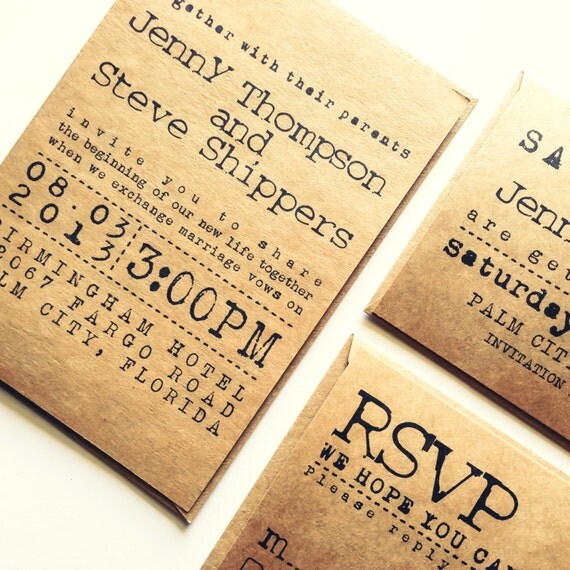 gether with their parents
Jenny Thompson
and
Steve Shippers
invite you to share
the beginning of our new life together
when we exchange marriage vows on
08.03
2013
3:00PM
IRMINGHAM HOTEL
2067 FARGO ROAD
LM CITY, FLORIDA
SA
Jenn
are get
saturday
PALM CIT
INVITATION
RSVP
WE HOPE YOU CA
Please reply
m